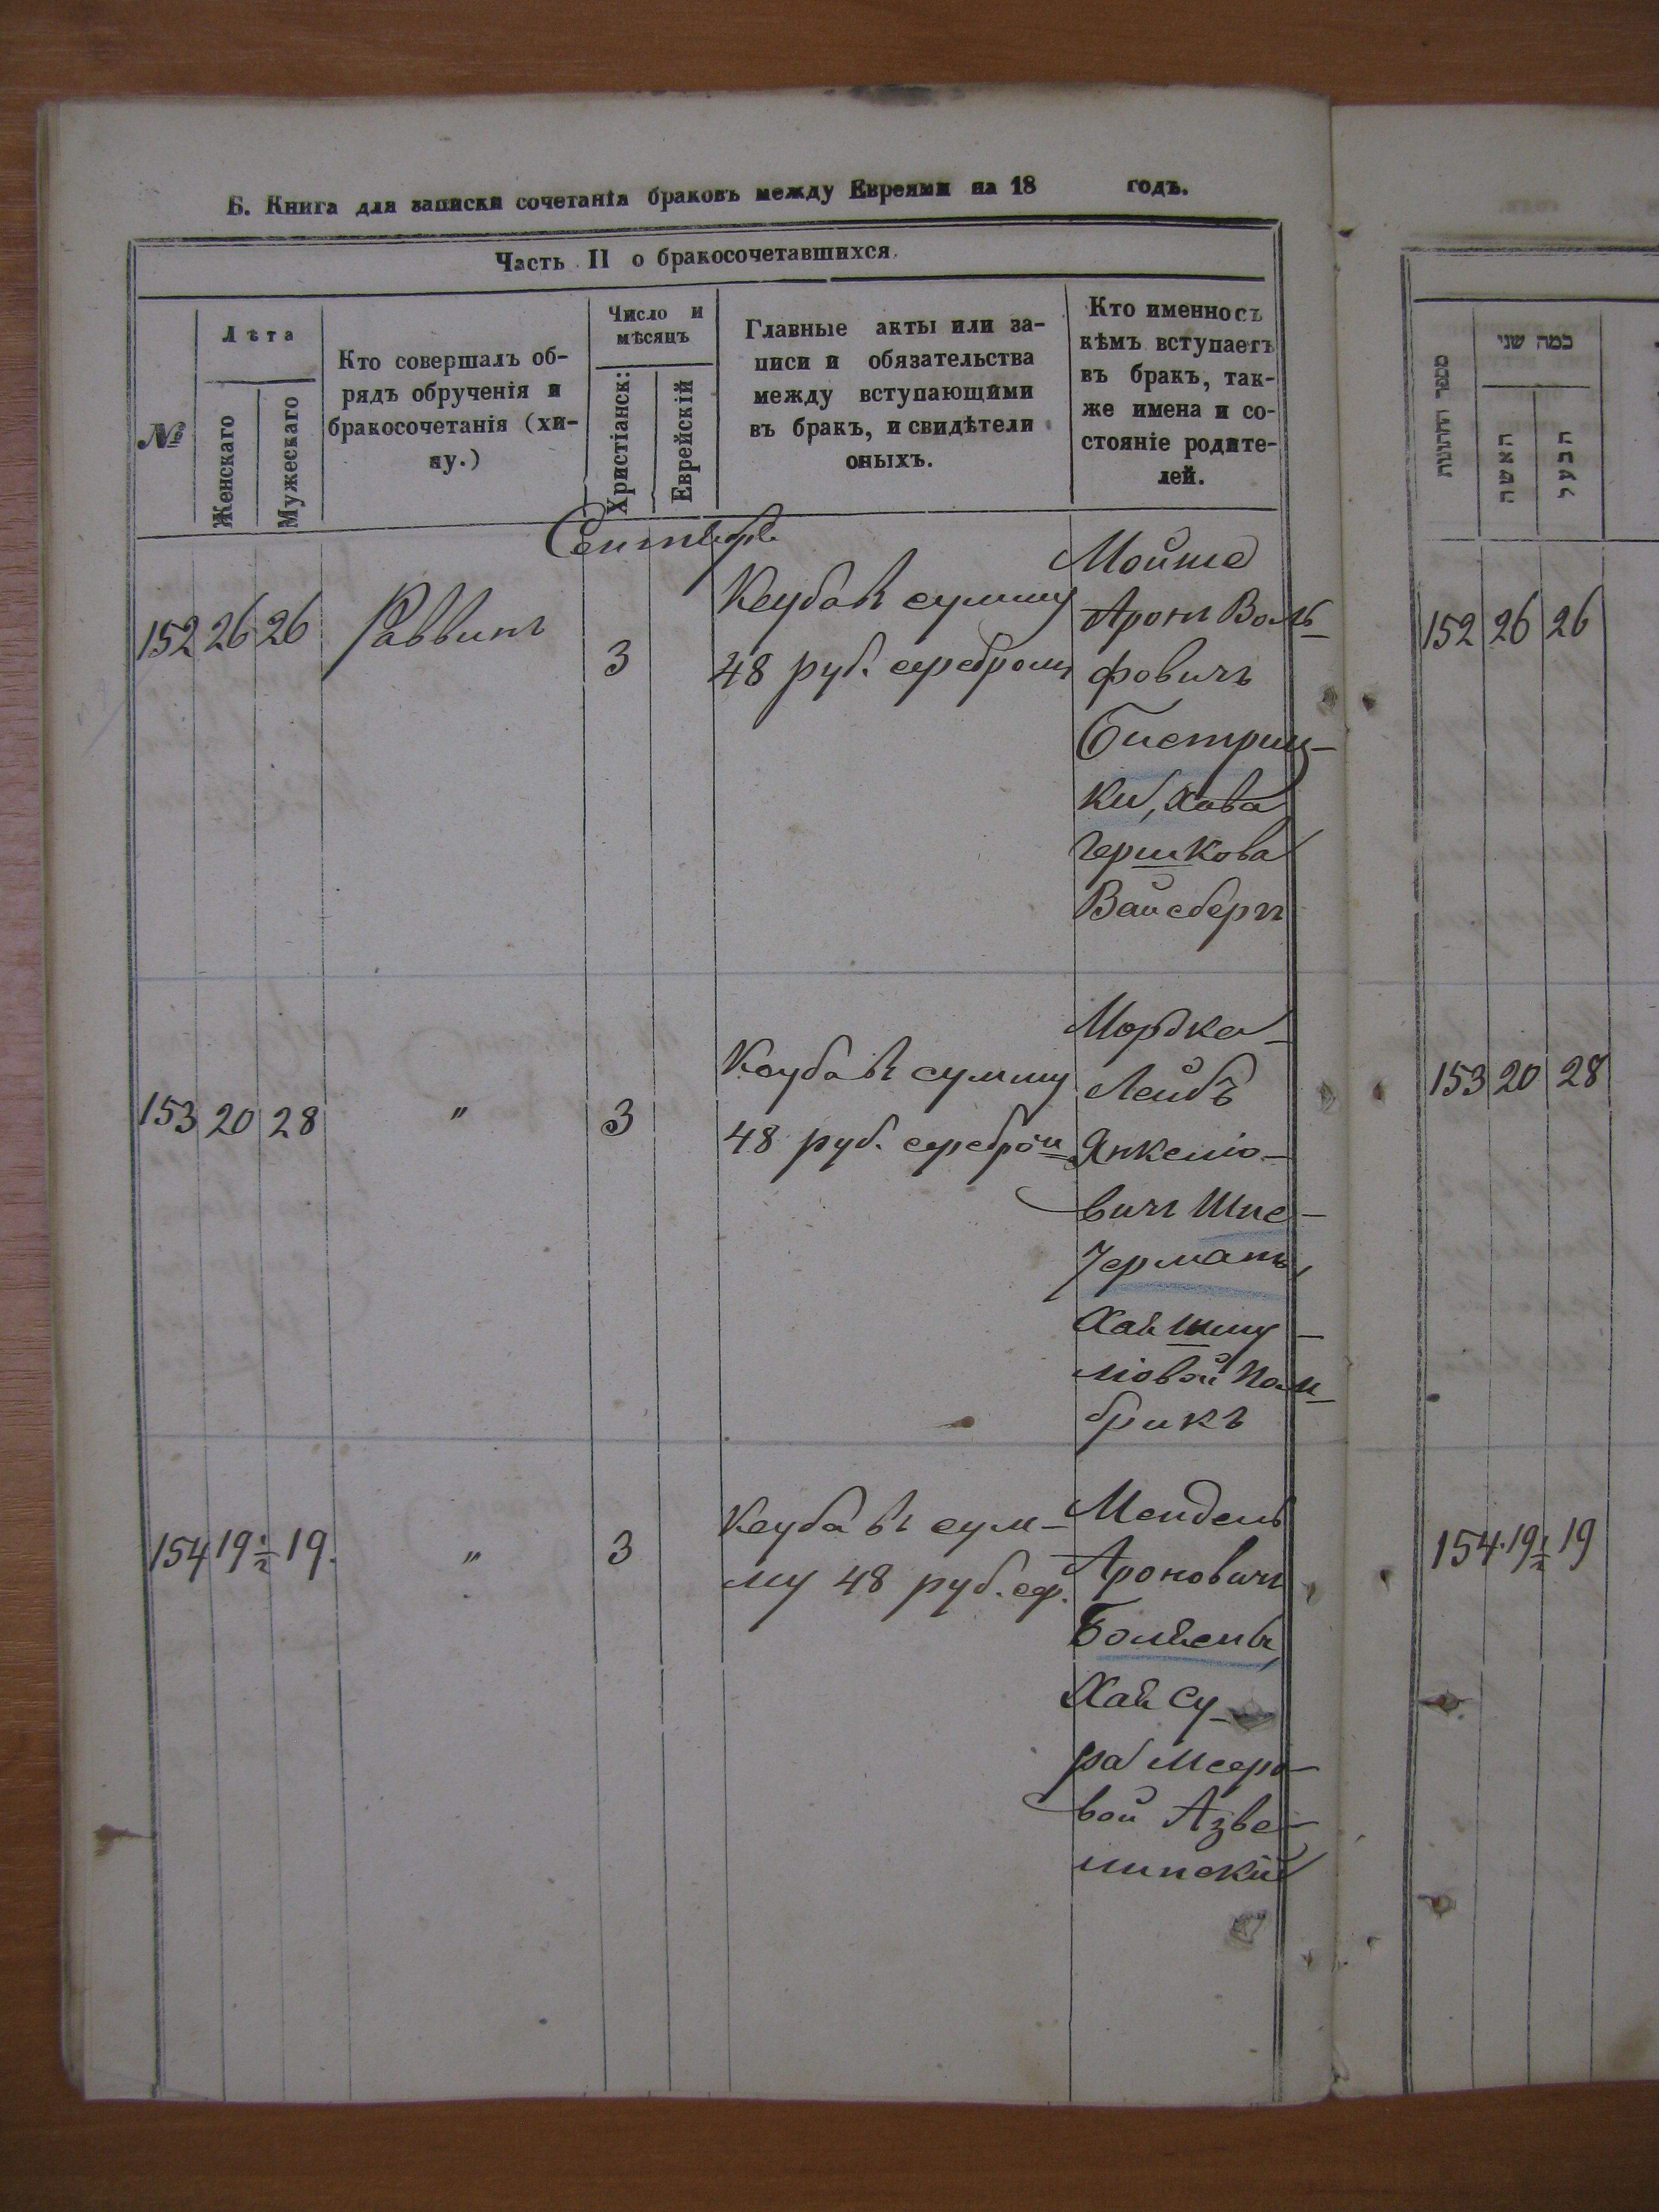 Б. Книга для записки сочетанія браковъ между Евреями на 18 годъ.
Часть II о бракосочетавшихся.
№
Лѣта
Женскаго
Мужескаго
Кто совершалъ об-
рядъ обрученія и
бракосочетанія (хи-
пу.)
Число и
мѣсяцъ
Христіанск:
Еврейскій
Главные акты или за-
писи и обязательства
между вступающими
въ бракъ, и свидѣтели
оныхъ.
Кто именно съ
кѣмъ вступаетъ
въ бракъ, так-
же имена и со-
стояніе родите-
лей.
Сентябрь
152 26 26 Раввинъ 3
Кеуба въ сумму
48 руб. серебромъ
Мойше
Аронъ Воль-
фовичъ
Бистриц-
кий, Хава
Гершкова
Вайсбергъ
153 20 28 " 3
Кеуба въ сумму
48 руб. серебромъ
Мордко-
Лейбъ
Янкеліо-
вичъ Шпе-
Хая Шму-
ліовой
брикъ
154 19½ 19. " 3
Кеуба въ сум-
му 48 руб. сер.
Мендель
Ароновичъ
Хая Су-
ра Мееро-
вой Азве-
כמה שני
מספר החתונות
האשה
הבעל
152 26 26
153 20 28
154 19½ 19